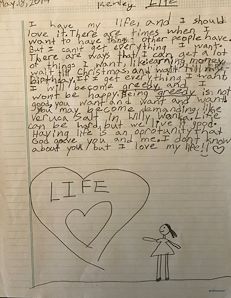 May 18, 2014 Kenley Life
I have my life, and I should
love it. There are times when I
want to have things other people have.
But I can't get everything I want.
There are ways that I can get a lot
of things I want, like earning money,
wait till Christmas and wait till my
birthday. If I get everything I want
I will become greedy and I
wont be happy. Being greedy is not
good, you want and want and want.
You may become demanding like
Veruca Salt in Willy Wonka. Life
can be hard, but we live it good.
Having life is an oprotunity that
God gave you and me. I don't know
about you but I love my life!!
LIFE